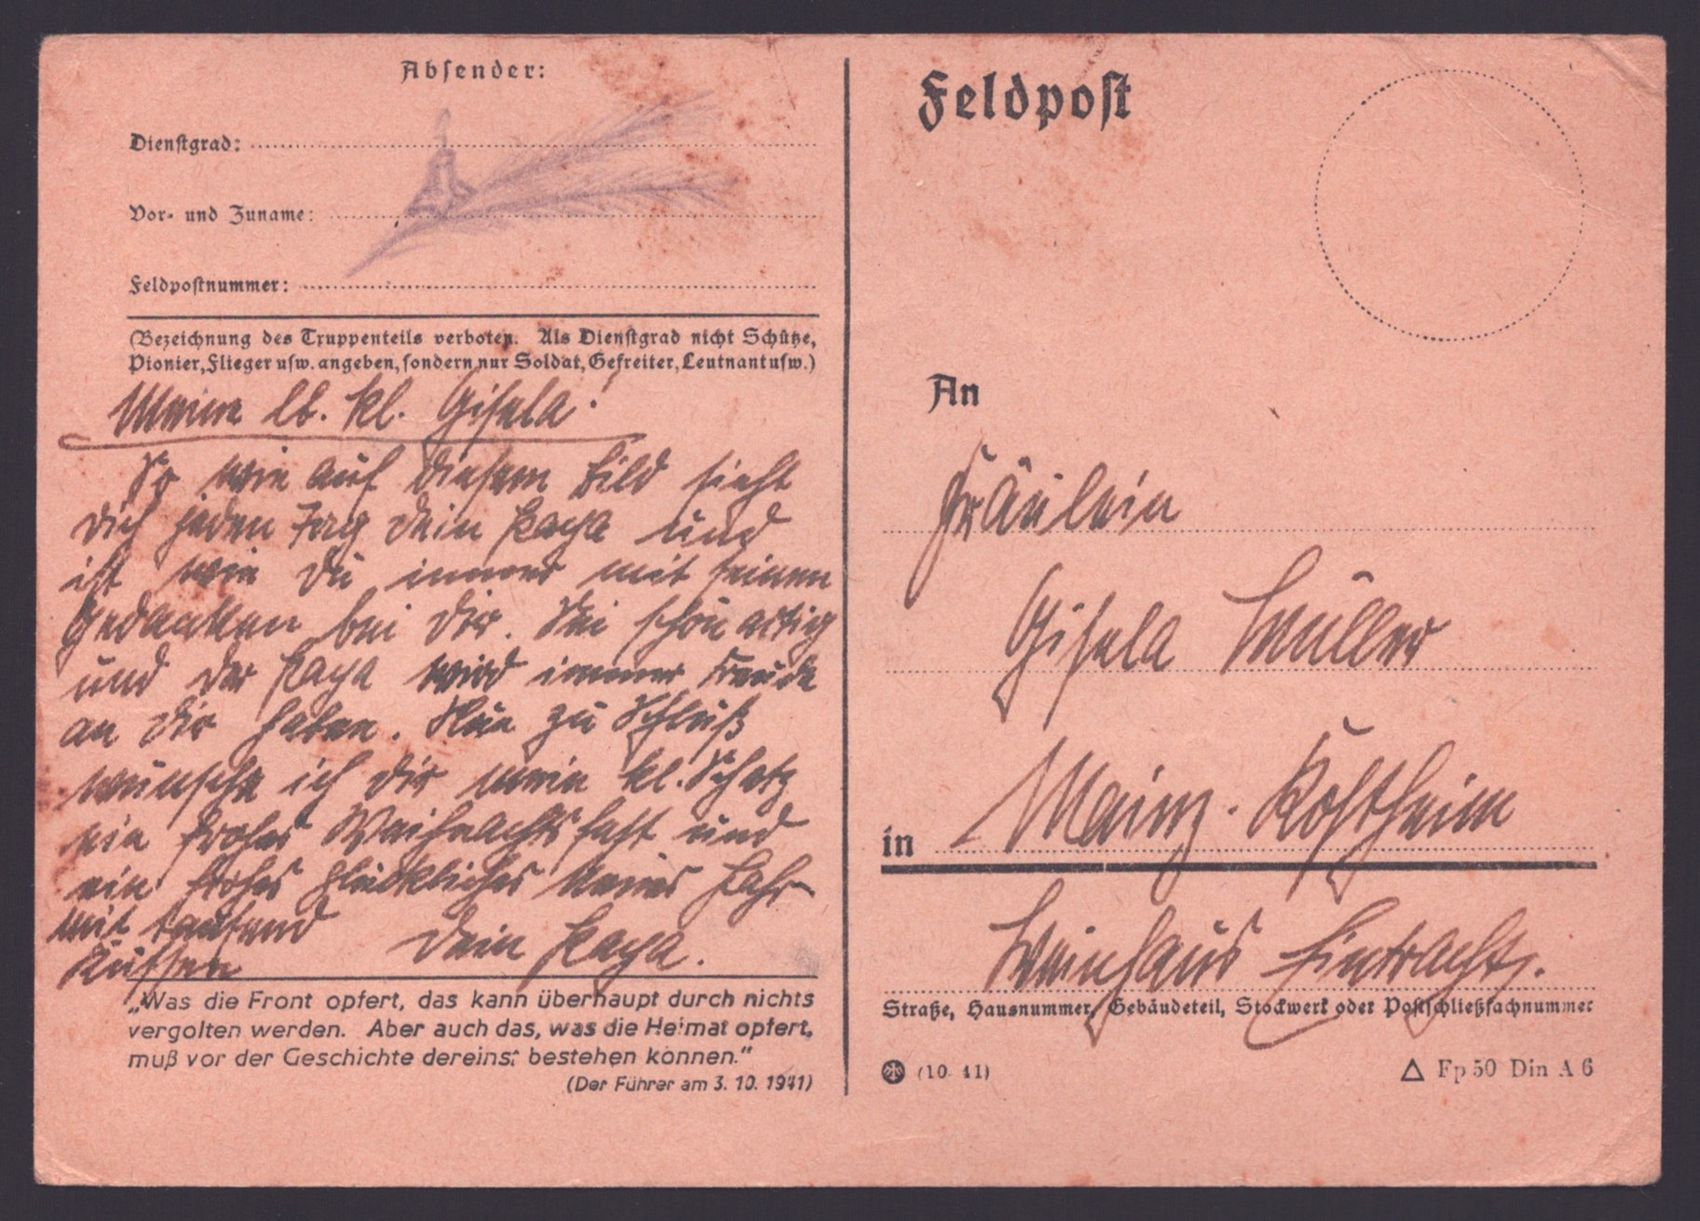 Absender:
Dienstgrad:
Vor- und Zuname:
Feldpostnummer:
(Bezeichnung des Truppenteils verboten. Als Dienstgrad nicht Schütze,
Pionier, Flieger usw. angeben, sondern nur Soldat, Gefreiter, Leutnant usw.)
Meine lb. kl. Gisela!
So wie auf diesem Bild sieht
Dich jeden Tag Dein Papa und
ist wie Du immer mit seinen
Gedanken bei Dir. Sei schön artig
und der Papa wird immer Freude
an Dir haben. Nun zu Schluß
wünsche ich Dir mein kl. Schatz
ein frohes Weihnachtsfest und
ein frohes glückliches neues Jahr
mit tausend
Küssen Dein Papa.
„Was die Front opfert, das kann überhaupt durch nichts
vergolten werden. Aber auch das, was die Heimat opfert,
muß vor der Geschichte dereinst bestehen können."
(Der Führer am 3. 10. 1941)
Feldpost
An
Fräulein
Gisela Müller
in Mainz-Kostheim
Weinhaus Eintracht.
Straße, Hausnummer, Gebäudeteil, Stockwerk oder Postschließfachnummer
(10. 41)
Fp 50 Din A 6